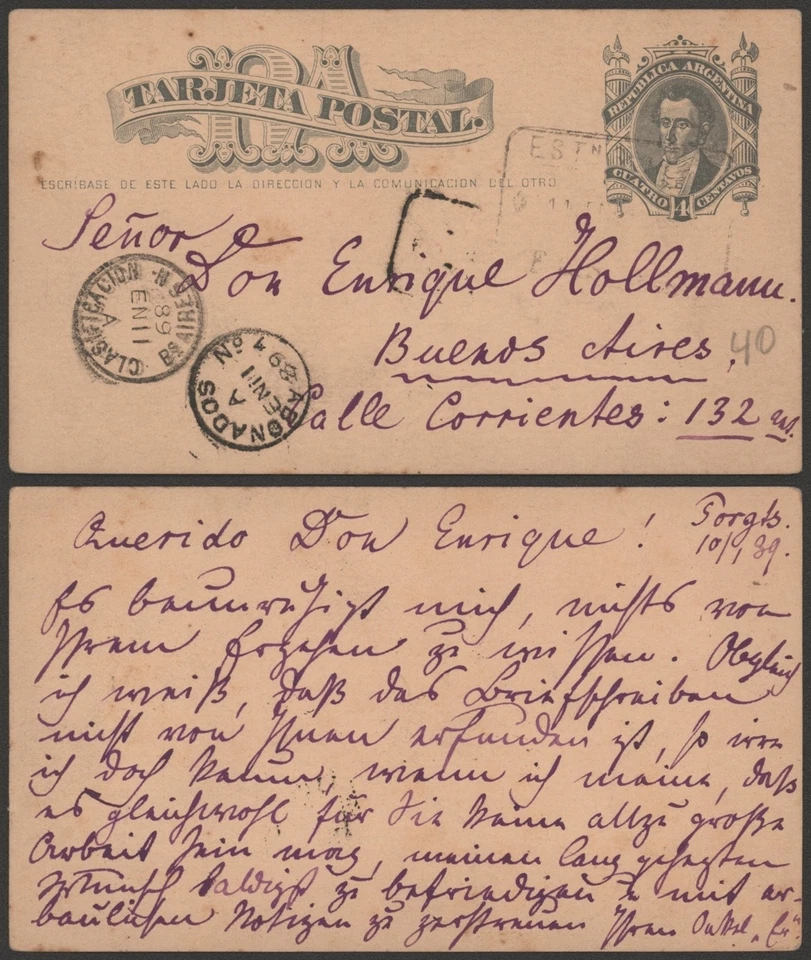 RA
TARJETA POSTAL.
REPUBLICA ARGENTINA
CUATRO 4 CENTAVOS
ESCRIBASE DE ESTE LADO LA DIRECCION Y LA COMUNICACION DEL OTRO
ESTN
11
Señor
Don Enrique Hollmann.
CLASIFICACION N BS AIRES
89
EN 11
A
Buenos Aires,
40
ABONADOS No 4
89
EN 11
A
Calle Corrientes: 132
10/1 89.
Querido Don Enrique!
Es beunruhigt mich, nichts von
Ihrem Ergehen zu wissen. Obgleich
ich weiß, daß das Briefschreiben
nicht von Ihnen erfunden ist, so irre
ich doch kaum, wenn ich meine, daß
es gleichwohl für Sie keine allzu große
Arbeit sein mag, meinen lang gehegten
Wunsch baldigst zu befriedigen u mit er-
baulichen Notizen zu zerstreuen Ihren Onkel